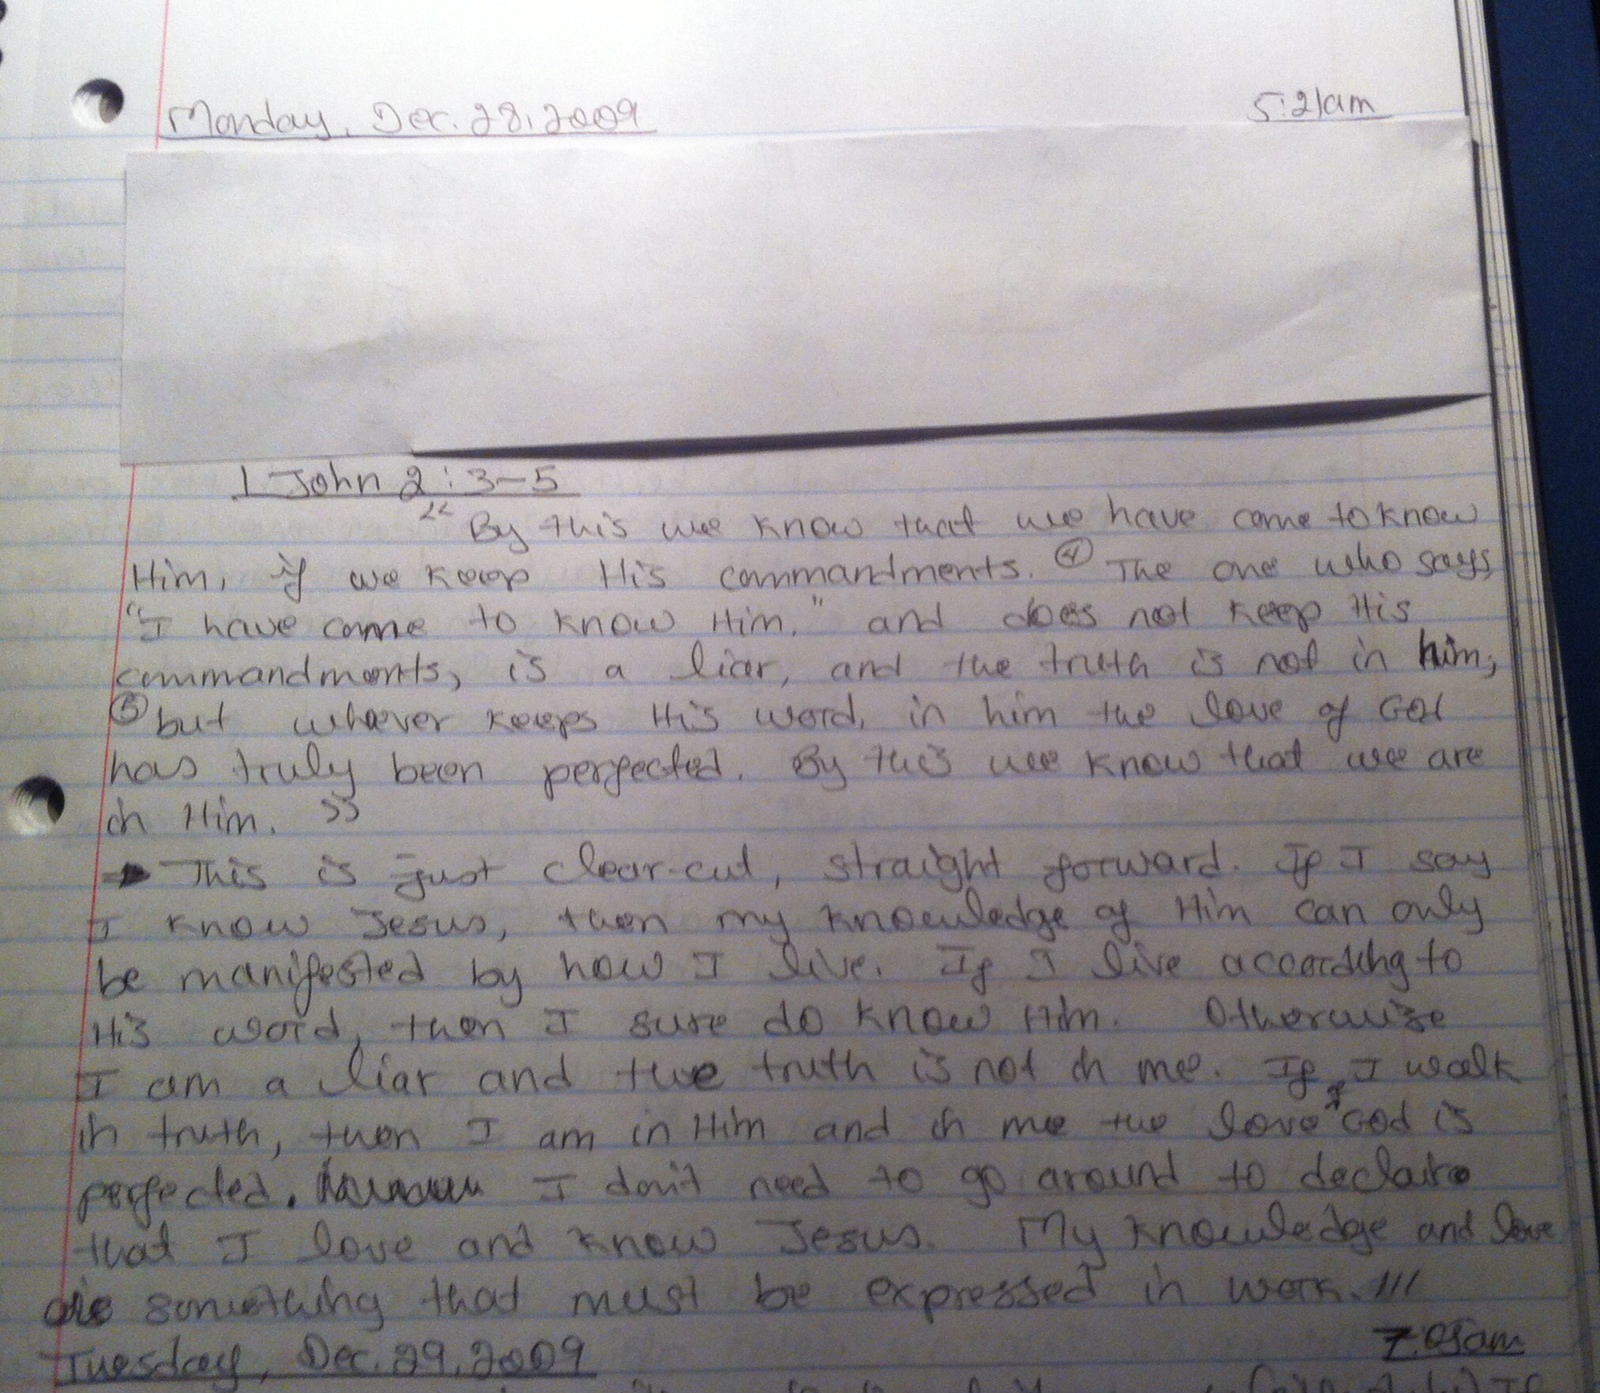 Monday, Dec. 28, 2009 5:21am
1 John 2:3-5
"By this we know that we have come to know
Him, if we keep His commandments. ④ The one who says,
"I have come to know Him," and does not keep His
commandments, is a liar, and the truth is not in him;
⑤ but whoever keeps His word, in him the love of God
has truly been perfected. By this we know that we are
in Him."
→ This is just clear-cut, straight forward. If I say
I know Jesus, then my knowledge of Him can only
be manifested by how I live. If I live according to
His word, then I sure do know Him. Otherwise
I am a liar and the truth is not in me. If I walk
in truth, then I am in Him and in me the love of God is
perfected. I don't need to go around to declare
that I love and know Jesus. My knowledge and love
are something that must be expressed in work. !!!
Tuesday, Dec. 29, 2009 7:05am